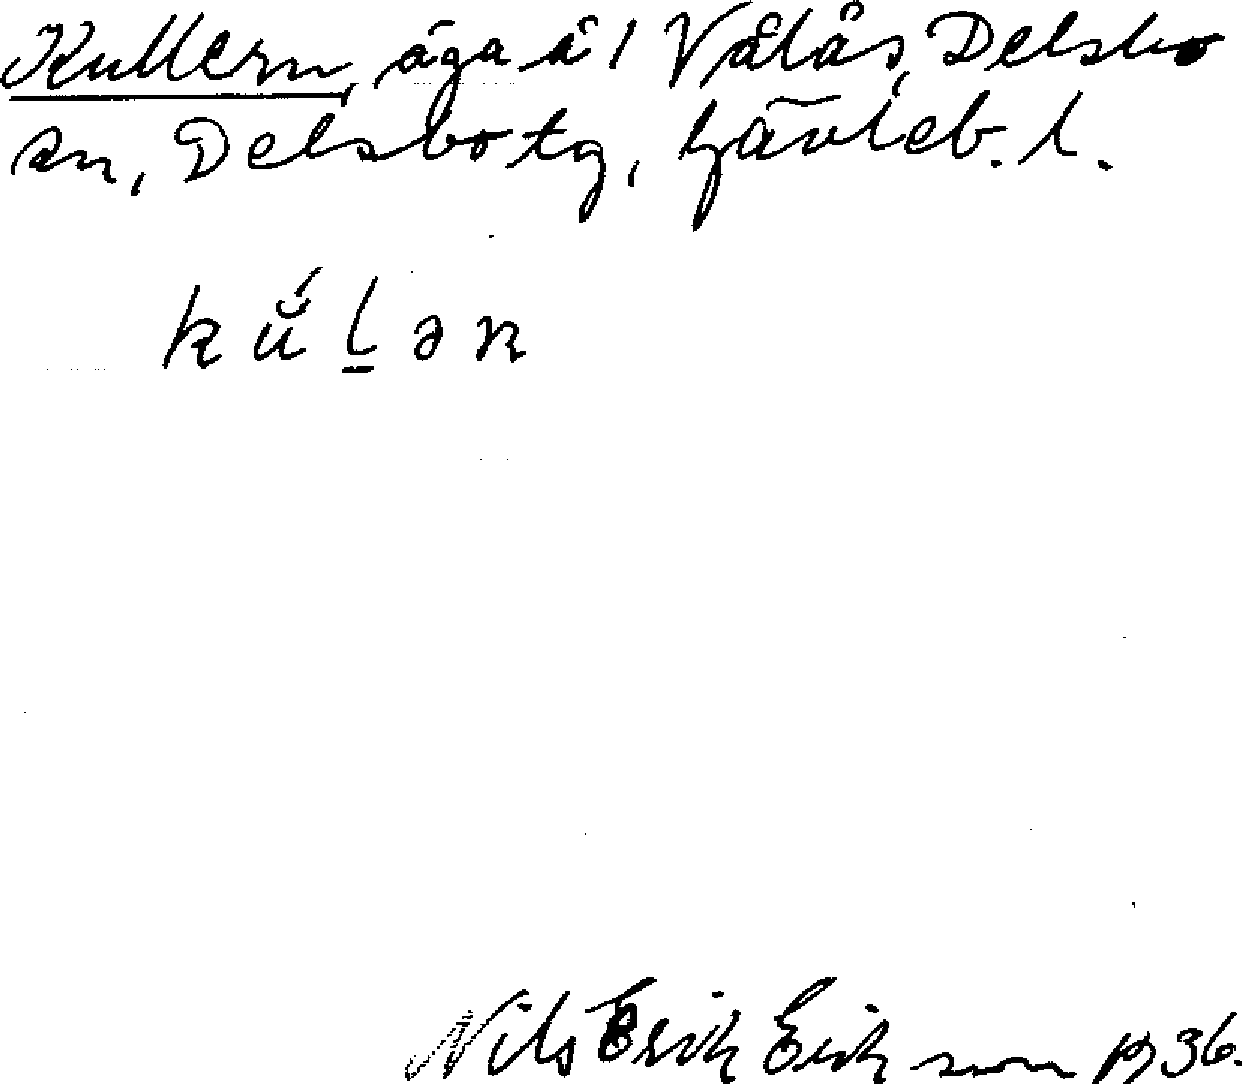 Kullern, äga å 1 Vålås, Delsbo
sn, Delsbo tg, Gävleb. l.
kǘl̠ən
Nils Erik Eriksson 1936.